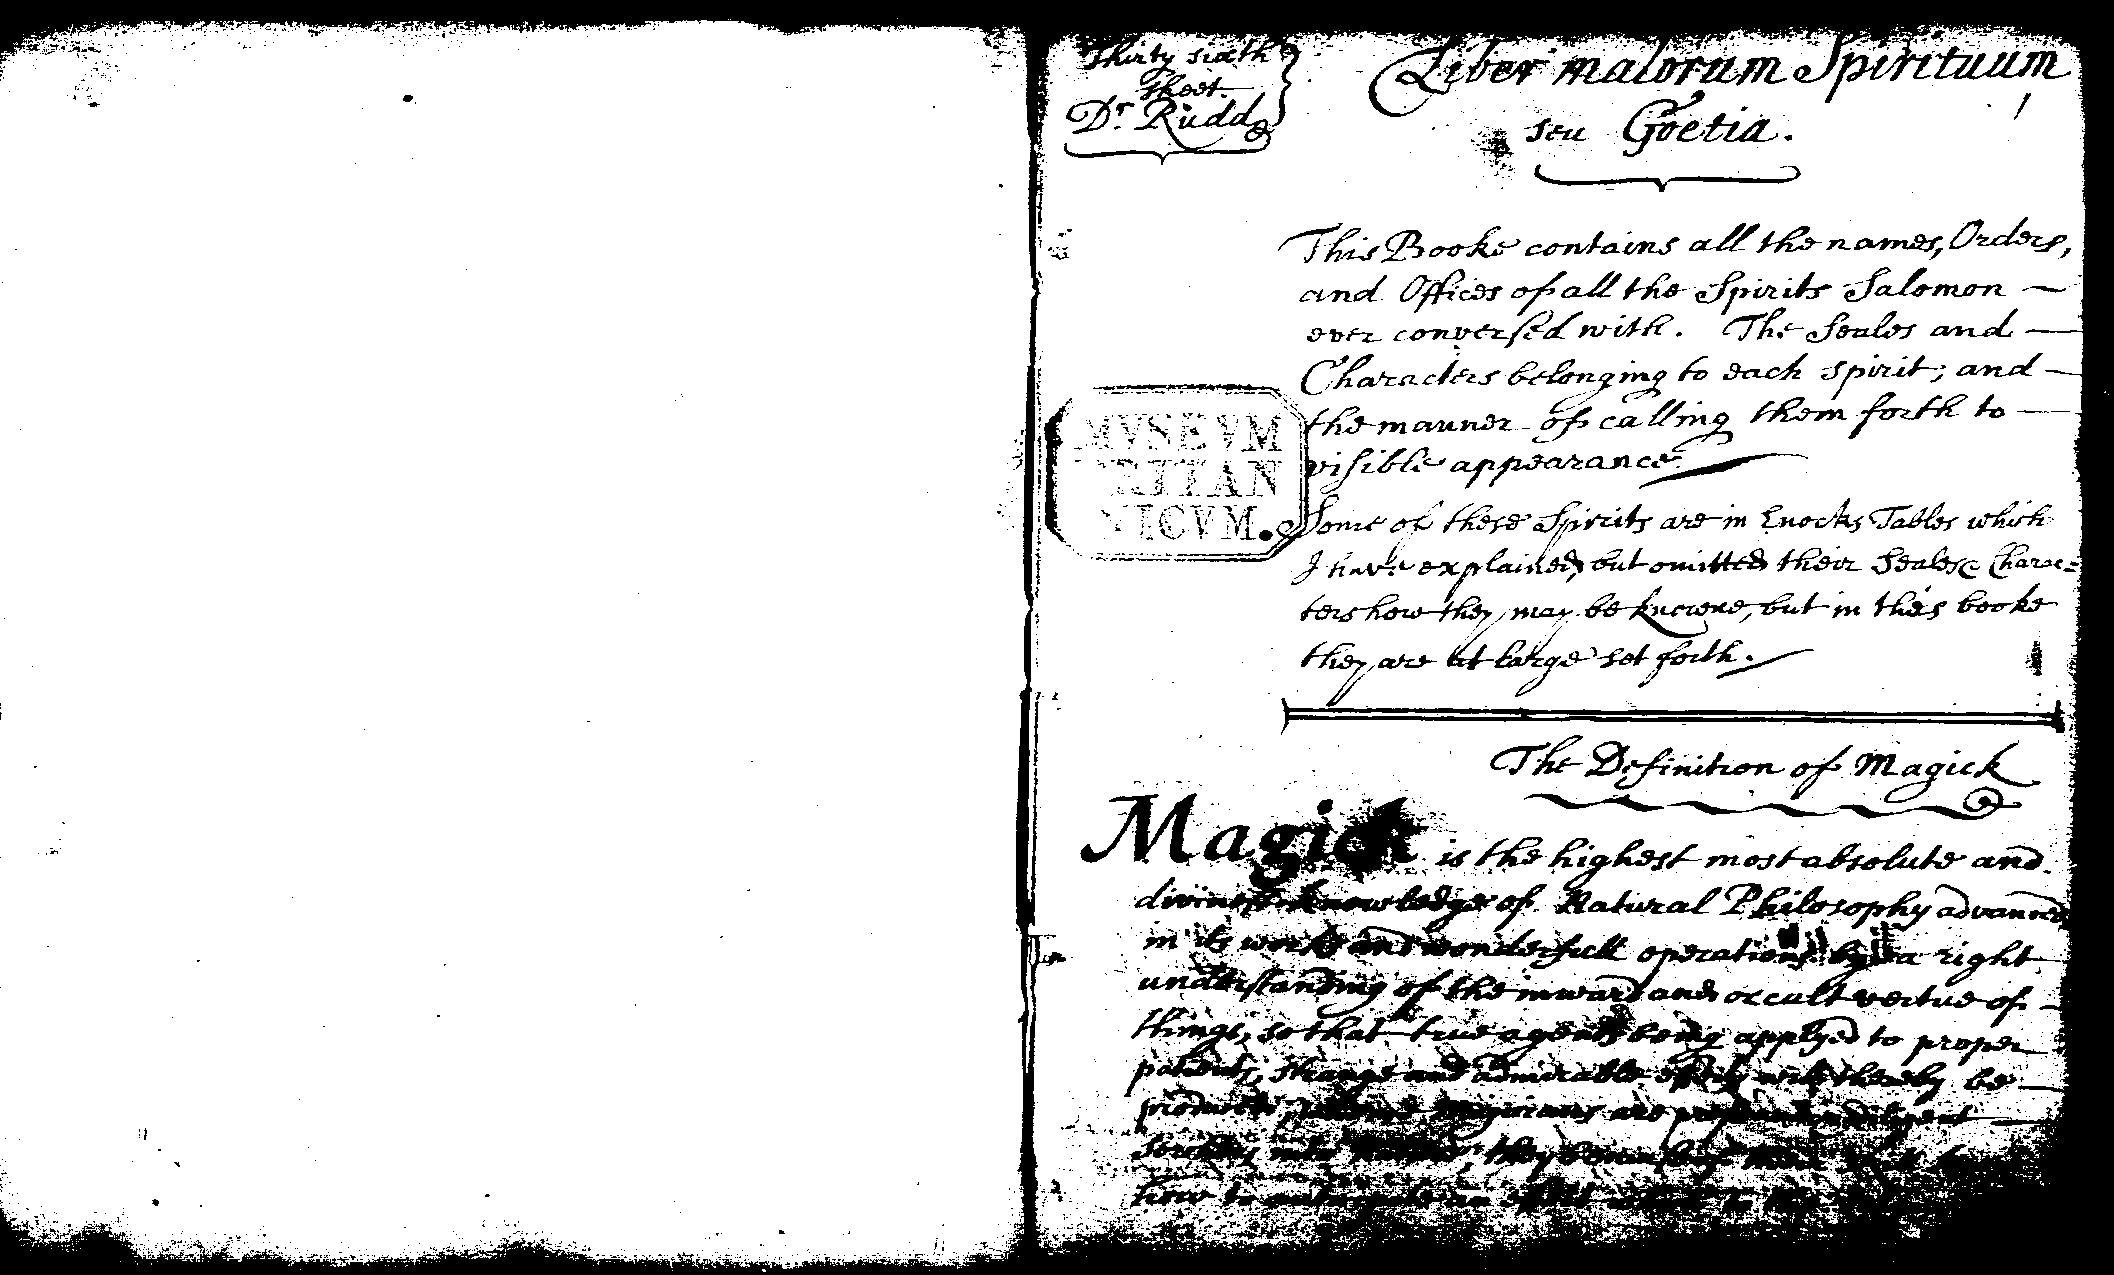 Thirty sixth
sheet.
Dr. Rudd
Liber malorum Spirituum
seu Goetia.
This Booke contains all the names, Orders,
and Offices of all the Spirits Salomon
ever conversed with. The Seales and
Characters belonging to each spirit; and
the manner of calling them forth to
visible appearance
MVSEVM
BRITAN
NICVM.
Some of these Spirits are in Enocks Tables which
I have explained, but omitted their Seales & Charac=
ters how they may be knowne, but in this booke
they are at large set forth.
The Definition of Magick
Magick is the highest most absolute and
divinest knowledge of Natural Philosophy advanced
in its works and wonderfull operations by a right
understanding of the inward and occult vertue of
things, so that true agents being applyed to proper
patients, strange and admirable effects will thereby be
produced Magicians are diligent
they
how to